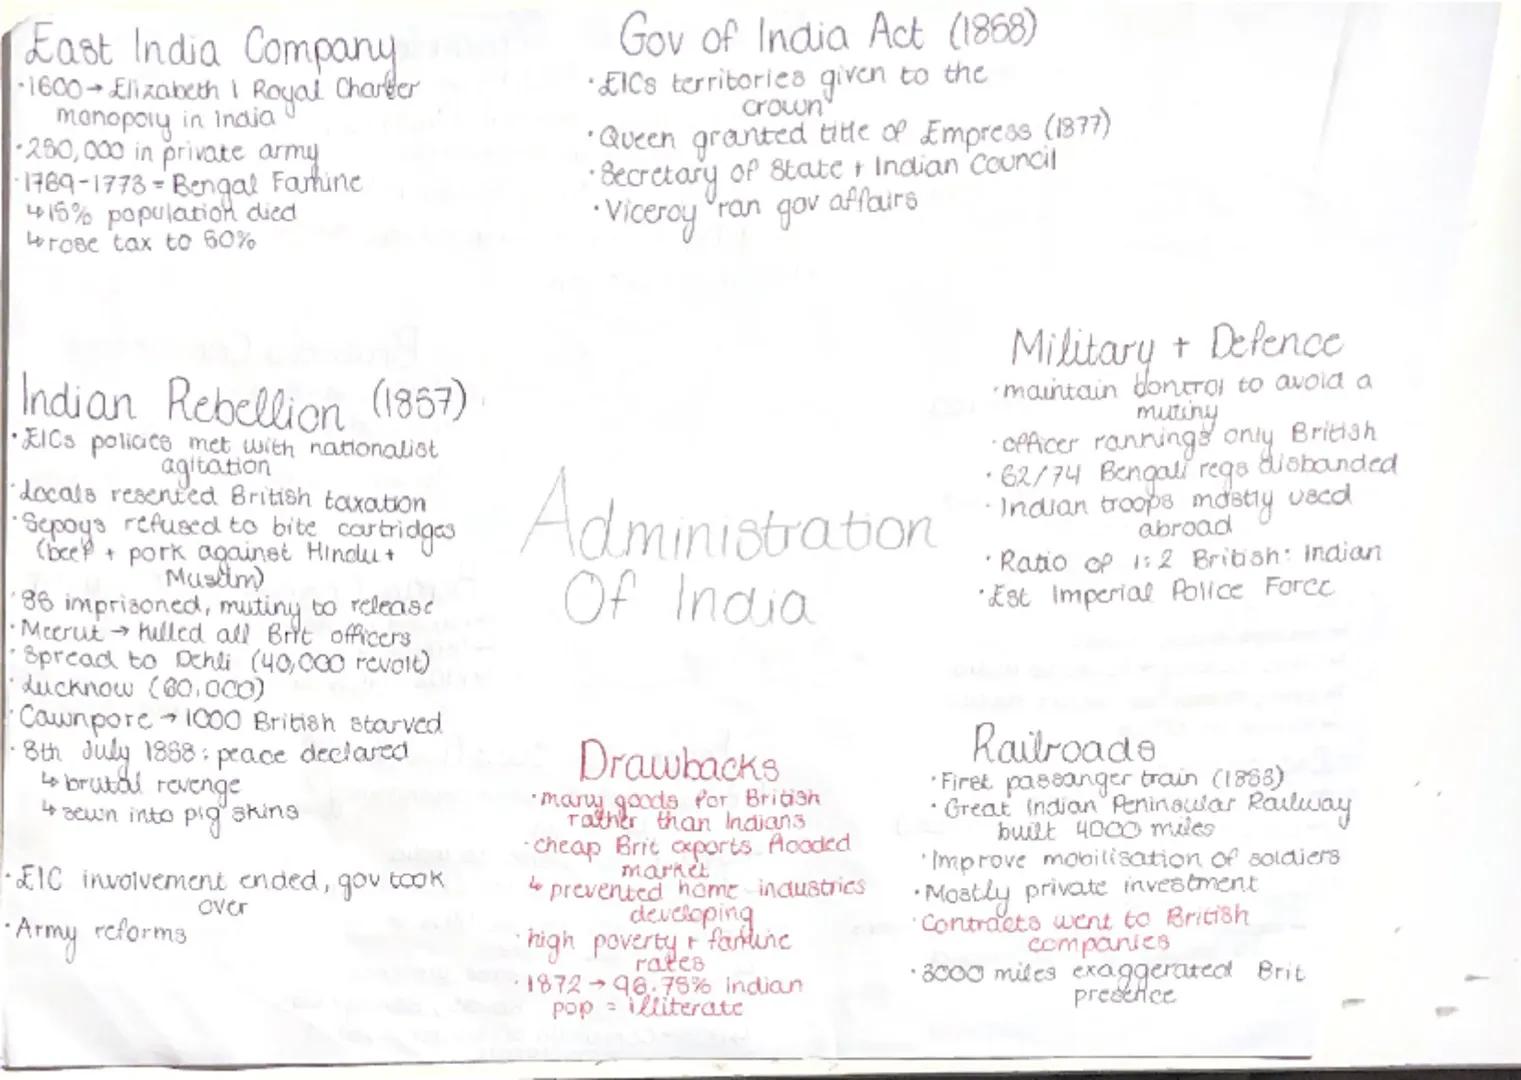 East India Company
·1600→ Elizabeth I Royal Charter
monopoly in India
·280,000 in private army
·1769-1773 = Bengal Famine
↳15% population died
↳rose tax to 60%
Gov of India Act (1858)
·EICs territories given to the
crown
·Queen granted title of Empress (1877)
·Secretary of State + Indian Council
·Viceroy ran gov affairs
Indian Rebellion (1857)
·EICs policies met with nationalist
agitation
·Locals resented British taxation
·Sepoys refused to bite cartridges
(beef + pork against Hindu +
Muslim)
·85 imprisoned, mutiny to release
·Meerut → killed all Brit officers
·Spread to Dehli (40,000 revolt)
·Lucknow (60,000)
·Cawnpore → 1000 British starved
·8th July 1858: peace declared
↳brutal revenge
↳sewn into pig skins
·EIC involvement ended, gov took
over
·Army reforms
Administration
Of India
Military + Defence
·maintain control to avoid a
mutiny
·officer rannings only British
·62/74 Bengali regs disbanded
·Indian troops mostly used
abroad
·Ratio of 1:2 British: Indian
·Est Imperial Police Force
Drawbacks
·many goods for British
rather than Indians
·cheap Brit exports flooded
market
↳prevented home industries
developing
·high poverty + famine
rates
·1872 → 96.75% Indian
pop = illiterate
Railroads
·First passanger train (1853)
·Great Indian Peninsular Railway
built 4000 miles
·Improve mobilisation of soldiers
·Mostly private investment
·Contracts went to British
companies
·3000 miles exaggerated Brit
presence